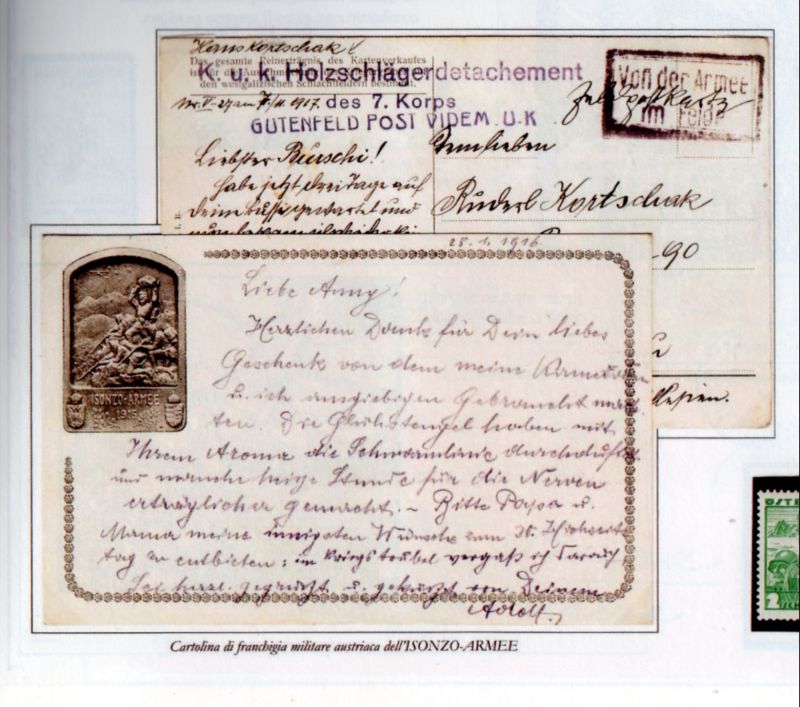 Hans Kortschak
Das gesamte Reinerträgnis des Kartenverkaufes
den westgalizischen Schlachtfeldern bestimmt.
K. u. k. Holzschlägerdetachement
des 7. Korps
GUTENFELD POST VIDEM U-K
Von der Armee
im Felde
Feldpostkarte
Liebster Burschi!
habe jetzt drei Tage auf
deine Küsse gewartet und
Ruderl Kortschak
-90
28.1.1916
ISONZO-ARMEE
1915
Liebe Anny!
Herzlichen Dank für Dein liebes
Geschenk von dem meine Kameraden
u. ich ausgiebigen Gebrauch
ten. Die Glühstengel haben mit
Ihrem Aroma die
und manche heige Stunde für die Nerven
erträglicher gemacht. – Bitte Papa u.
Mama meine innigsten Wünsche zum
tag zu entbieten; im Kriegstrubel vergaß ich darauf
Sei herzl. gegrüßt u. geküsst von Deinem
Adolf.
ÖSTE
2
Cartolina di franchigia militare austriaca dell'ISONZO-ARMEE